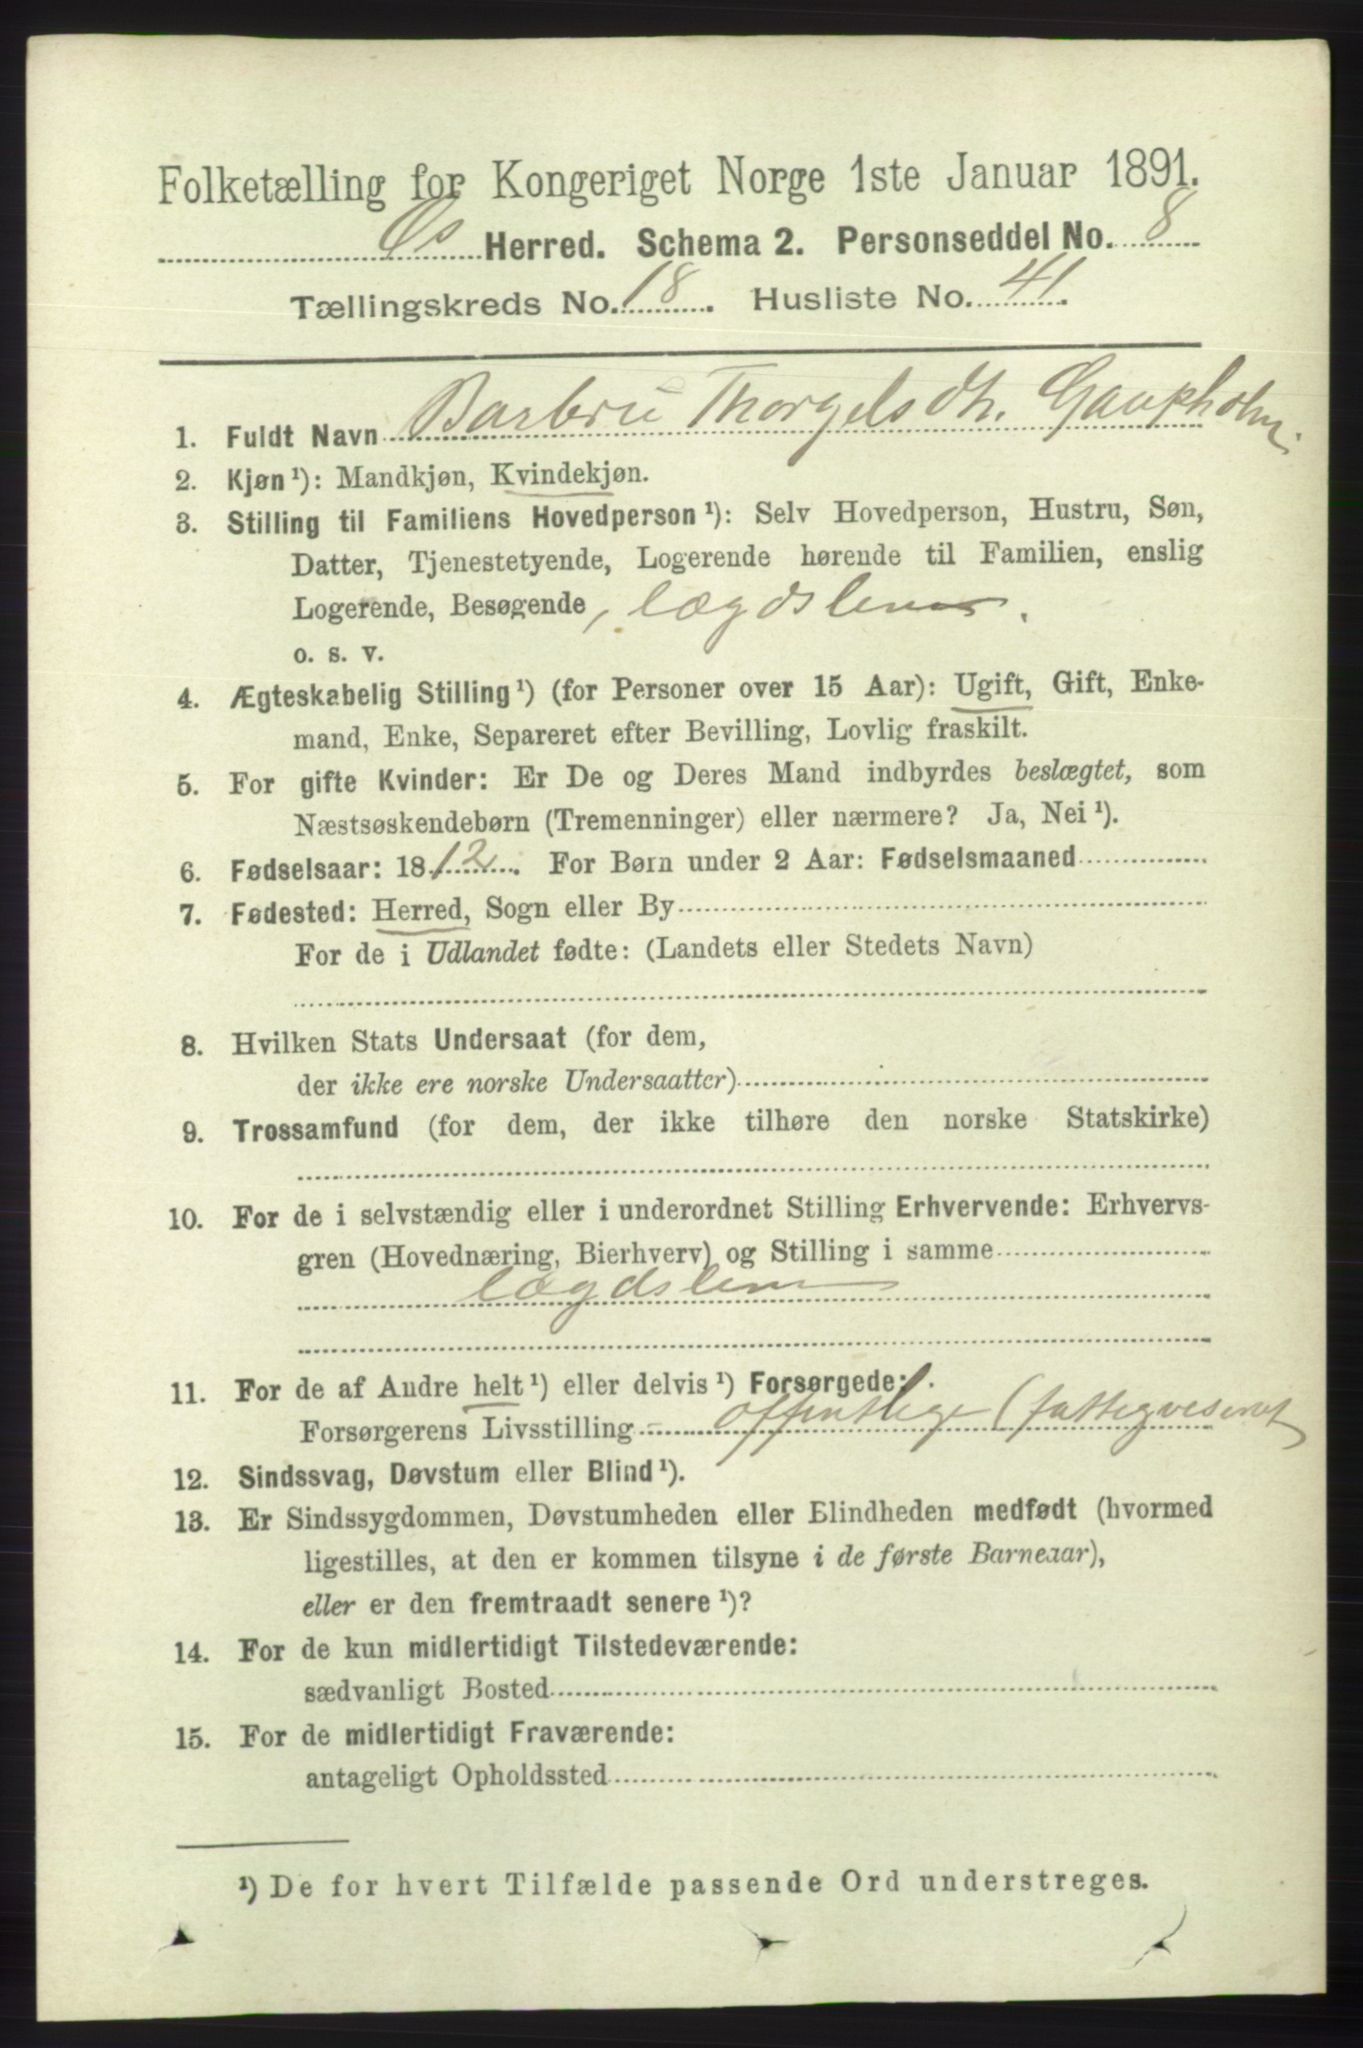 Folketælling for Kongeriget Norge 1ste Januar 1891.
Os Herred. Schema 2. Personseddel No. 8
Tællingskreds No. 18. Husliste No. 41.
1. Fuldt Navn Barbru Thorgelsdtr. Gaupholm.
2. Kjøn ¹): Mandkjøn, Kvindekjøn.
3. Stilling til Familiens Hovedperson ¹): Selv Hovedperson, Hustru, Søn,
Datter, Tjenestetyende, Logerende hørende til Familien, enslig
Logerende, Besøgende, lægdslem.
o. s. v.
4. Ægteskabelig Stilling ¹) (for Personer over 15 Aar): Ugift, Gift, Enke-
mand, Enke, Separeret efter Bevilling, Lovlig fraskilt.
5. For gifte Kvinder: Er De og Deres Mand indbyrdes beslægtet, som
Næstsøskendebørn (Tremenninger) eller nærmere? Ja, Nei ¹).
6. Fødselsaar: 1812. For Børn under 2 Aar: Fødselsmaaned
7. Fødested: Herred, Sogn eller By
For de i Udlandet fødte: (Landets eller Stedets Navn)
8. Hvilken Stats Undersaat (for dem,
der ikke ere norske Undersaatter)
9. Trossamfund (for dem, der ikke tilhøre den norske Statskirke)
10. For de i selvstændig eller i underordnet Stilling Erhvervende: Erhvervs-
gren (Hovednæring, Bierhverv) og Stilling i samme
lægdslem
11. For de af Andre helt ¹) eller delvis ¹) Forsørgede:
Forsørgerens Livsstilling offentlige (fattigvesenet
12. Sindssvag, Døvstum eller Blind ¹).
13. Er Sindssygdommen, Døvstumheden eller Blindheden medfødt (hvormed
ligestilles, at den er kommen tilsyne i de første Barneaar),
eller er den fremtraadt senere ¹)?
14. For de kun midlertidigt Tilstedeværende:
sædvanligt Bosted
15. For de midlertidigt Fraværende:
antageligt Opholdssted
¹) De for hvert Tilfælde passende Ord understreges.